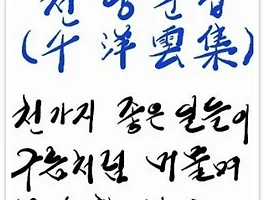 천양운집
(千洋雲集)
천가지 좋은 일들이
구름처럼 머물며